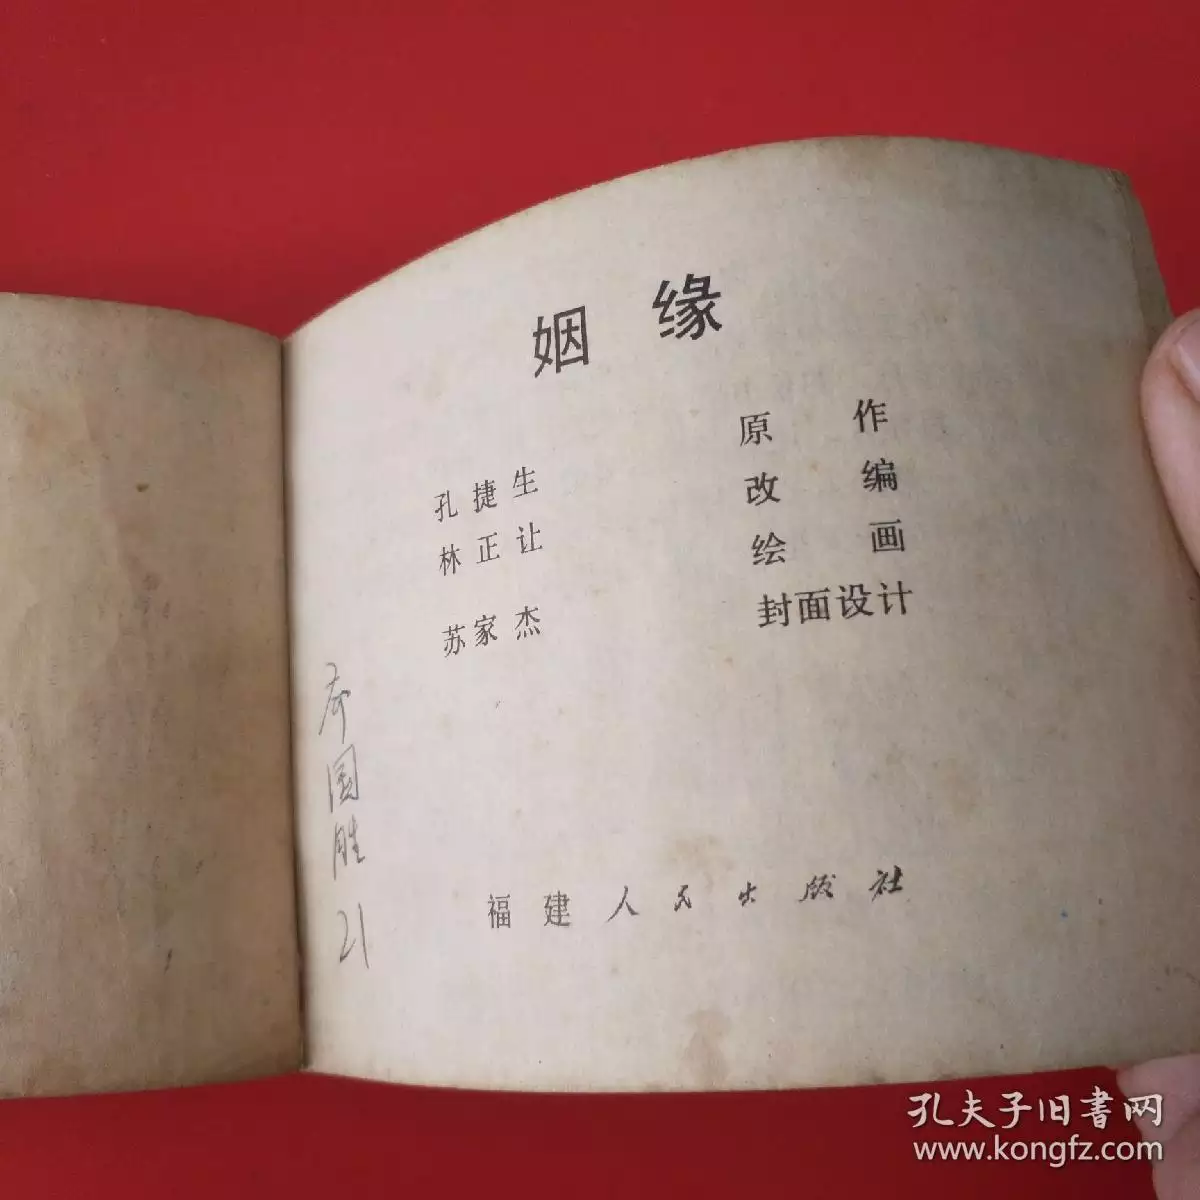 姻缘
孔捷生 原作
林正让 改编
绘画
苏家杰 封面设计
国胜
21
福建人民出版社
孔夫子旧书网
www.kongfz.com